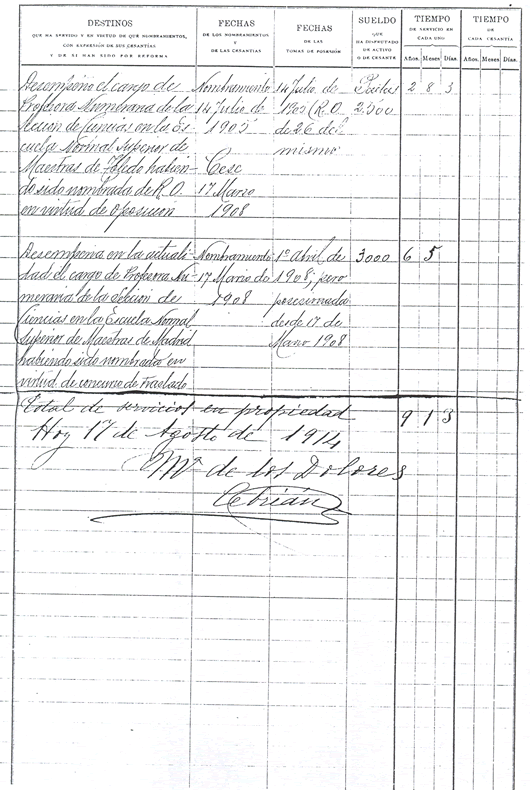 DESTINOS
QUE HA SERVIDO Y EN VIRTUD DE QUÉ NOMBRAMIENTOS,
CON EXPRESIÓN DE SUS CESANTÍAS
Y DE SI HAN SIDO POR REFORMA
FECHAS
DE LOS NOMBRAMIENTOS
Y
DE LAS CESANTÍAS
FECHAS
DE LAS
TOMAS DE POSESIÓN
SUELDO
QUE HA DISFRUTADO
DE ACTIVO
O DE CESANTE
TIEMPO
DE SERVICIO EN
CADA UNO
Años. Meses Días.
TIEMPO
DE
CADA CESANTÍA
Años. Meses Días.
Desempeñó el cargo de
Profesora Numeraria de la
Sección de Ciencias en la Es-
cuela Normal Superior de
Maestras de Toledo habien-
do sido nombrada de R.O.
en virtud de oposicion
Nombramiento
14 Julio de
1905.
Cese
17 Marzo
1908
14 Julio de
1905 (R.O.
de 26 del
mismo
Pesetas
2.500
2 8 3
Desempeña en la actuali-
dad el cargo de Profesora Nu-
meraria de la Seccion de
Ciencias en la Escuela Normal
Superior de Maestras de Madrid
habiendo sido nombrada en
virtud de concurso de traslado
Nombramiento
17 Marzo de
1908
1º abril de
1908; pero
posesionada
desde 17 de
Marzo 1908
3000
6 5
Total de servicios en propiedad
9 1 3
Hoy 17 de Agosto de 1914
Mª de los Dolores
Cebrián